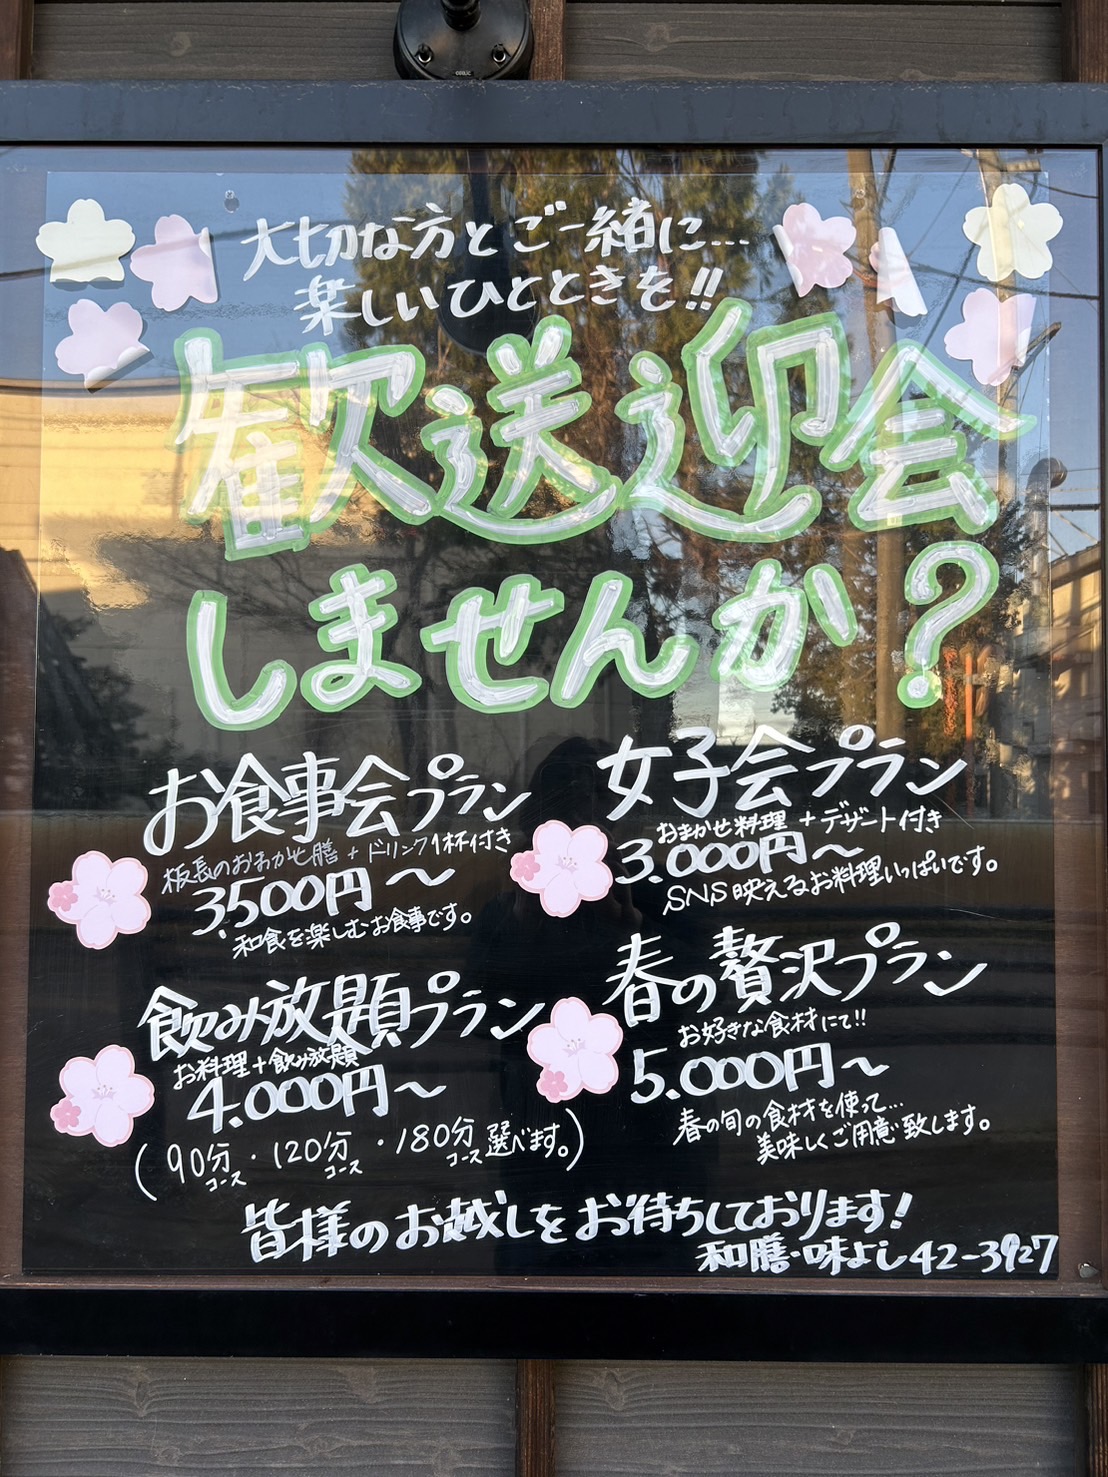 大切な方とご一緒に…
楽しいひとときを!!
歓送迎会
しませんか?
お食事会プラン
板長のおまかせ膳+ドリンク1杯付き
3,500円〜
和食を楽しむお食事です。
女子会プラン
おまかせ料理+デザート付き
3.000円〜
SNS映えるお料理いっぱいです。
飲み放題プラン
お料理+飲み放題
4.000円〜
(90分コース・120分コース・180分コース選べます。)
春の贅沢プラン
お好きな食材にて!!
5.000円〜
春の旬の食材を使って…
美味しくご用意致します。
皆様のお越しをお待ちしております!
和膳・味よし42-3927